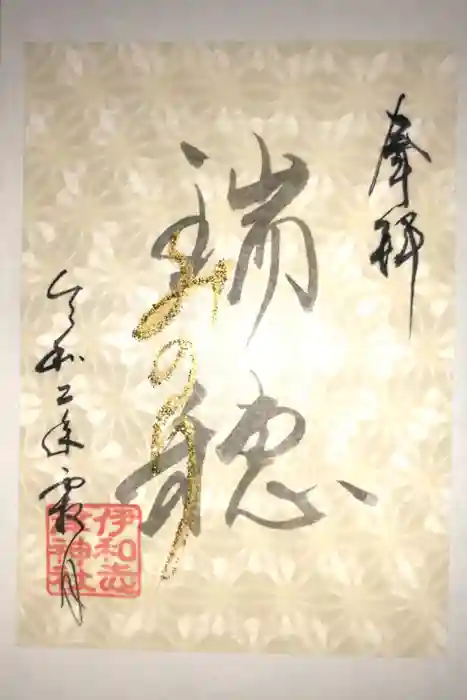 奉拝
瑞穂
令和二年霜月
伊和志
津神社